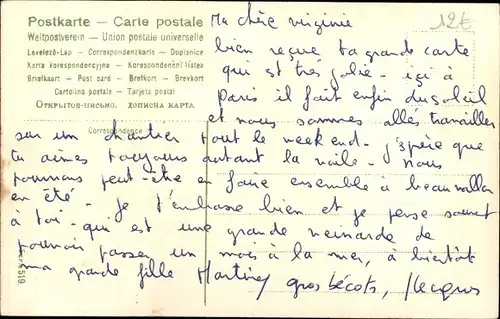 Postkarte — Carte postale
Weltpostverein — Union postale universelle
Levelező-Lap — Correspondenzkarte — Dopisnice
Karta korespondencyjna — Korespondenčni listek
Briefkaart — Post card — Brefkort — Brevkort
Cartolina postale — Tarjeta postal
Открытое письмо. Дописна карта
Correspondence
12€
Ma chère virginie
bien reçue ta grande carte
qui est très jolie - ici à
Paris il fait enfin du soleil
et nous sommes allés travailler
sur un chantier tout le week end - j'espère que
tu aimes toujours autant la voile - nous
pourrons peut-être en faire ensemble à beauvallon
en été - je t'embrasse bien et je pense souvent
à toi - qui est une grande veinarde de
pouvoir passer un mois à la mer, à bientôt
ma grande fille Martine
gros bécots, Jacques
519